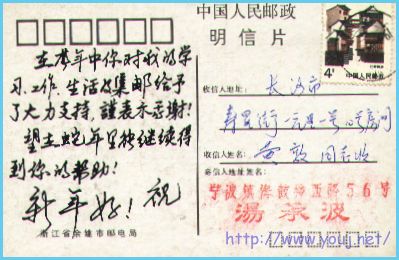 中国人民邮政
明信片
4分
中国人民邮政
在龙年中你对我的学
习、工作、生活及集邮给予
了大力支持,谨表示感谢!
望在蛇年里能继续得
到你的帮助!
祝
新年好!
浙江省余姚市邮电局
收信人地址:
长沙市
寿星街一元里一号
收信人姓名:
黄毅 同志收
寄信人地址姓名:
宁波镇海鼓楼56号
汤永波
http://www.youj.net/